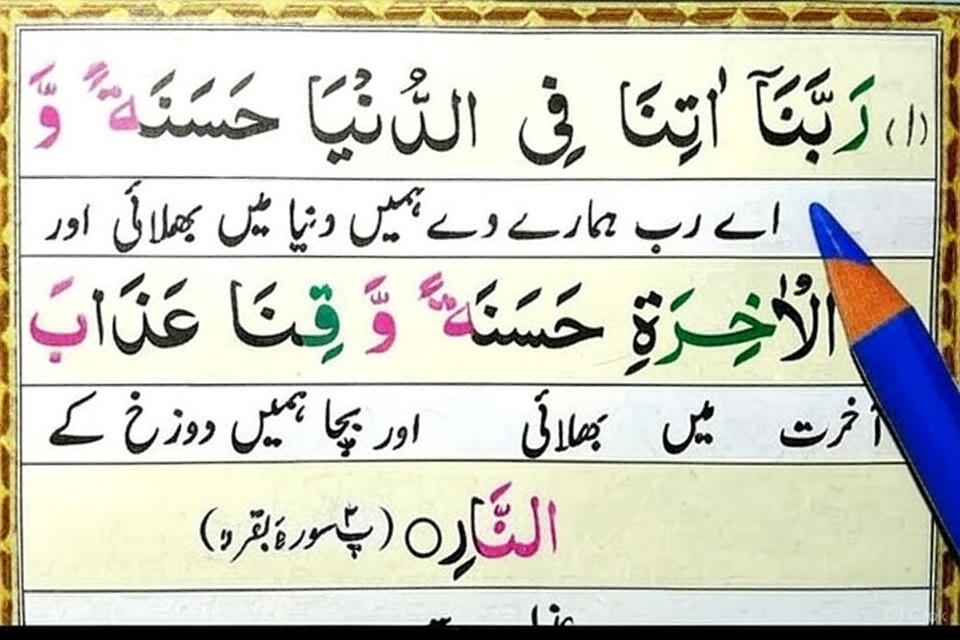 (۱) رَبَّنَآ اٰتِنَا فِی الدُّنْیَا حَسَنَةً وَّ
اے رب ہمارے دے ہمیں دنیا میں بھلائی اور
الْاٰخِرَةِ حَسَنَةً وَّ قِنَا عَذَابَ
آخرت میں بھلائی اور بچا ہمیں دوزخ کے
النَّارِ○ (پ۲ سورۃ بقرہ)